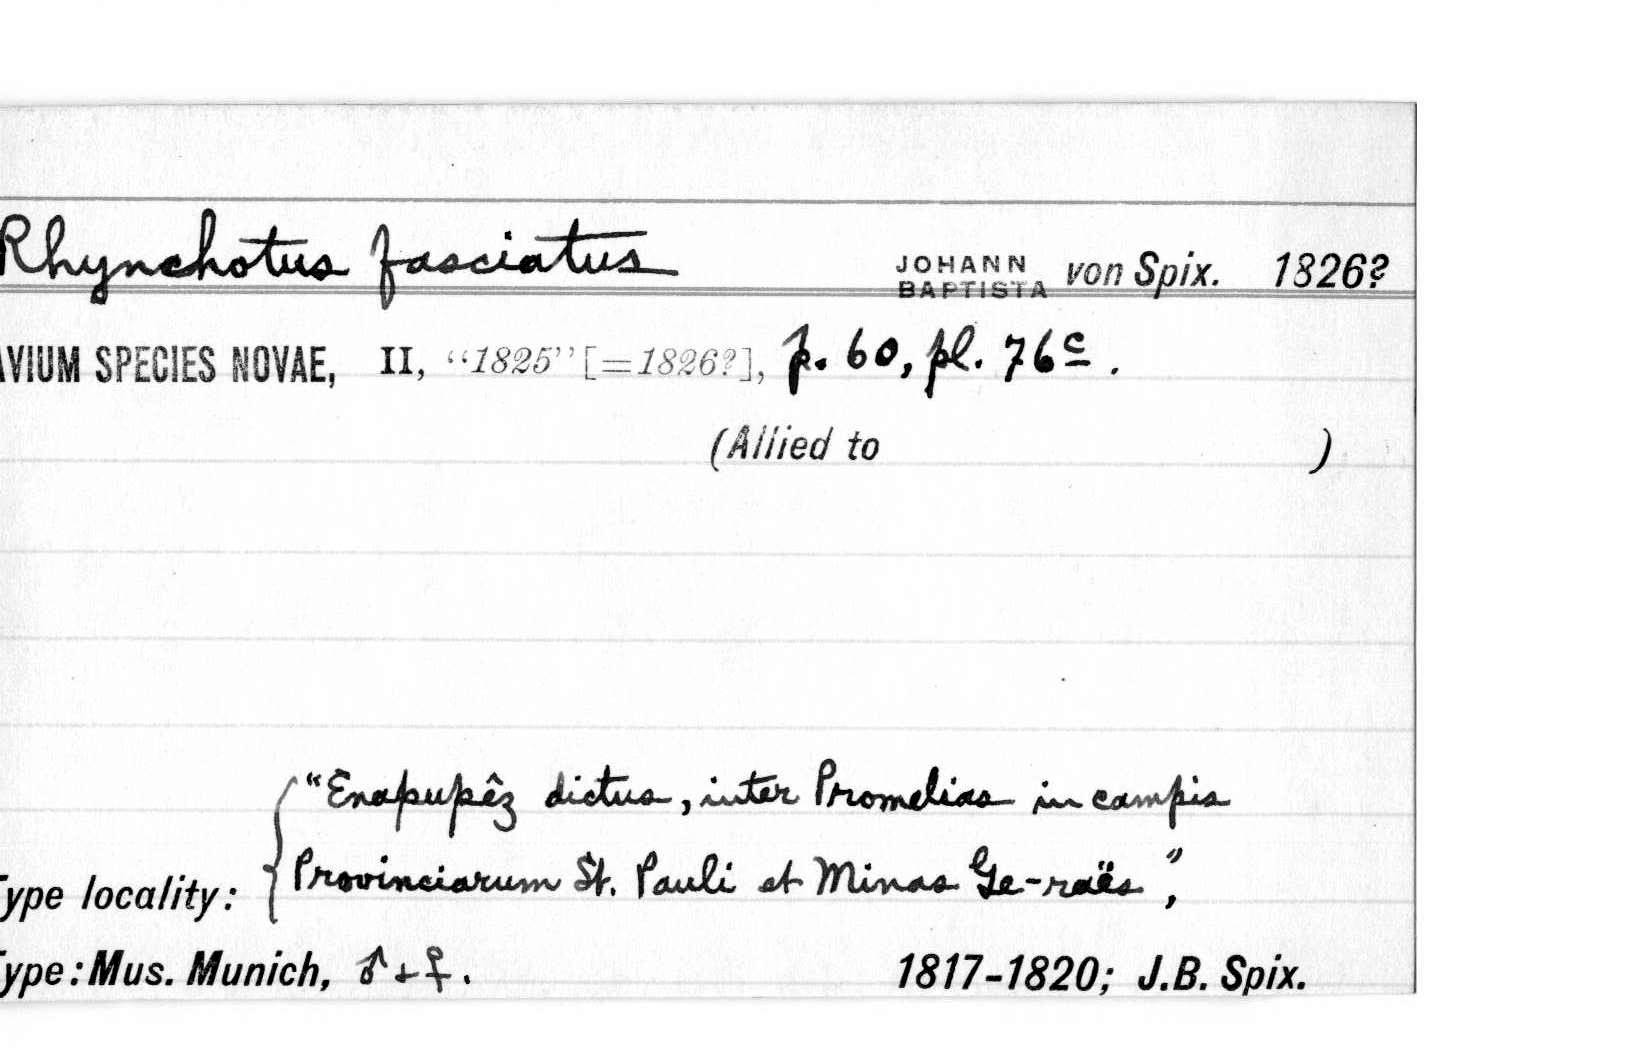 Rhynchotus fasciatus JOHANN BAPTISTA von Spix. 1826?
AVIUM SPECIES NOVAE, II, “1825” [=1826?], p. 60, pl. 76c.
(Allied to )
“Enapupêz dictus, inter Promelias in campis
Provinciarum St. Pauli et Minas Ge-raës”,
Type locality:
Type: Mus. Munich, ♂+♀. 1817-1820; J.B. Spix.